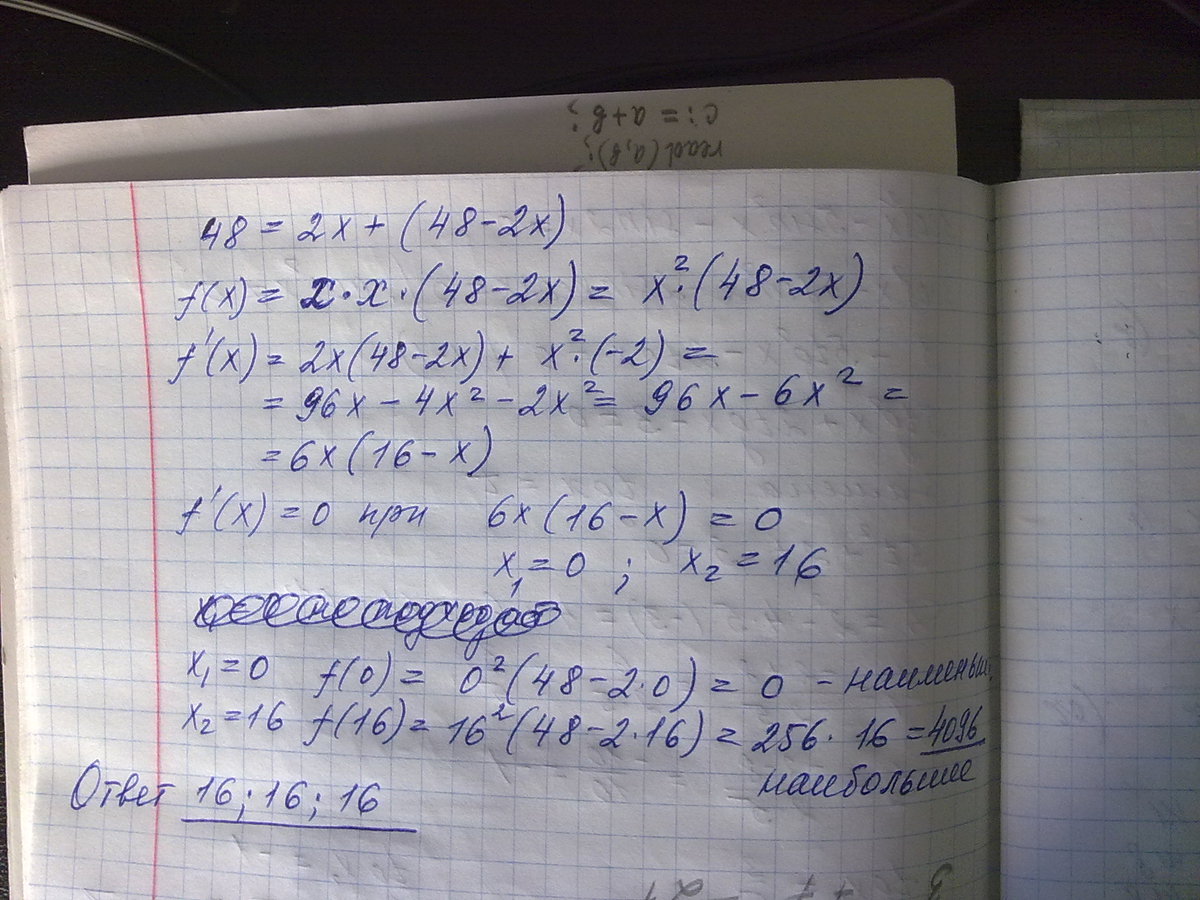 c:=a+b;
read(a,b);
48 = 2x + (48-2x)
f(x) = x·x·(48-2x) = x²·(48-2x)
f'(x) = 2x(48-2x) + x²·(-2) =
= 96x - 4x² - 2x² = 96x - 6x² =
= 6x(16-x)
f'(x) = 0 при 6x(16-x) = 0
x₁ = 0 ; x₂ = 16
x₁ = 0 f(0) = 0²(48-2·0) = 0 - наименьш.
x₂ = 16 f(16) = 16²(48-2·16) = 256·16 = 4096
наибольшие
Ответ 16; 16; 16